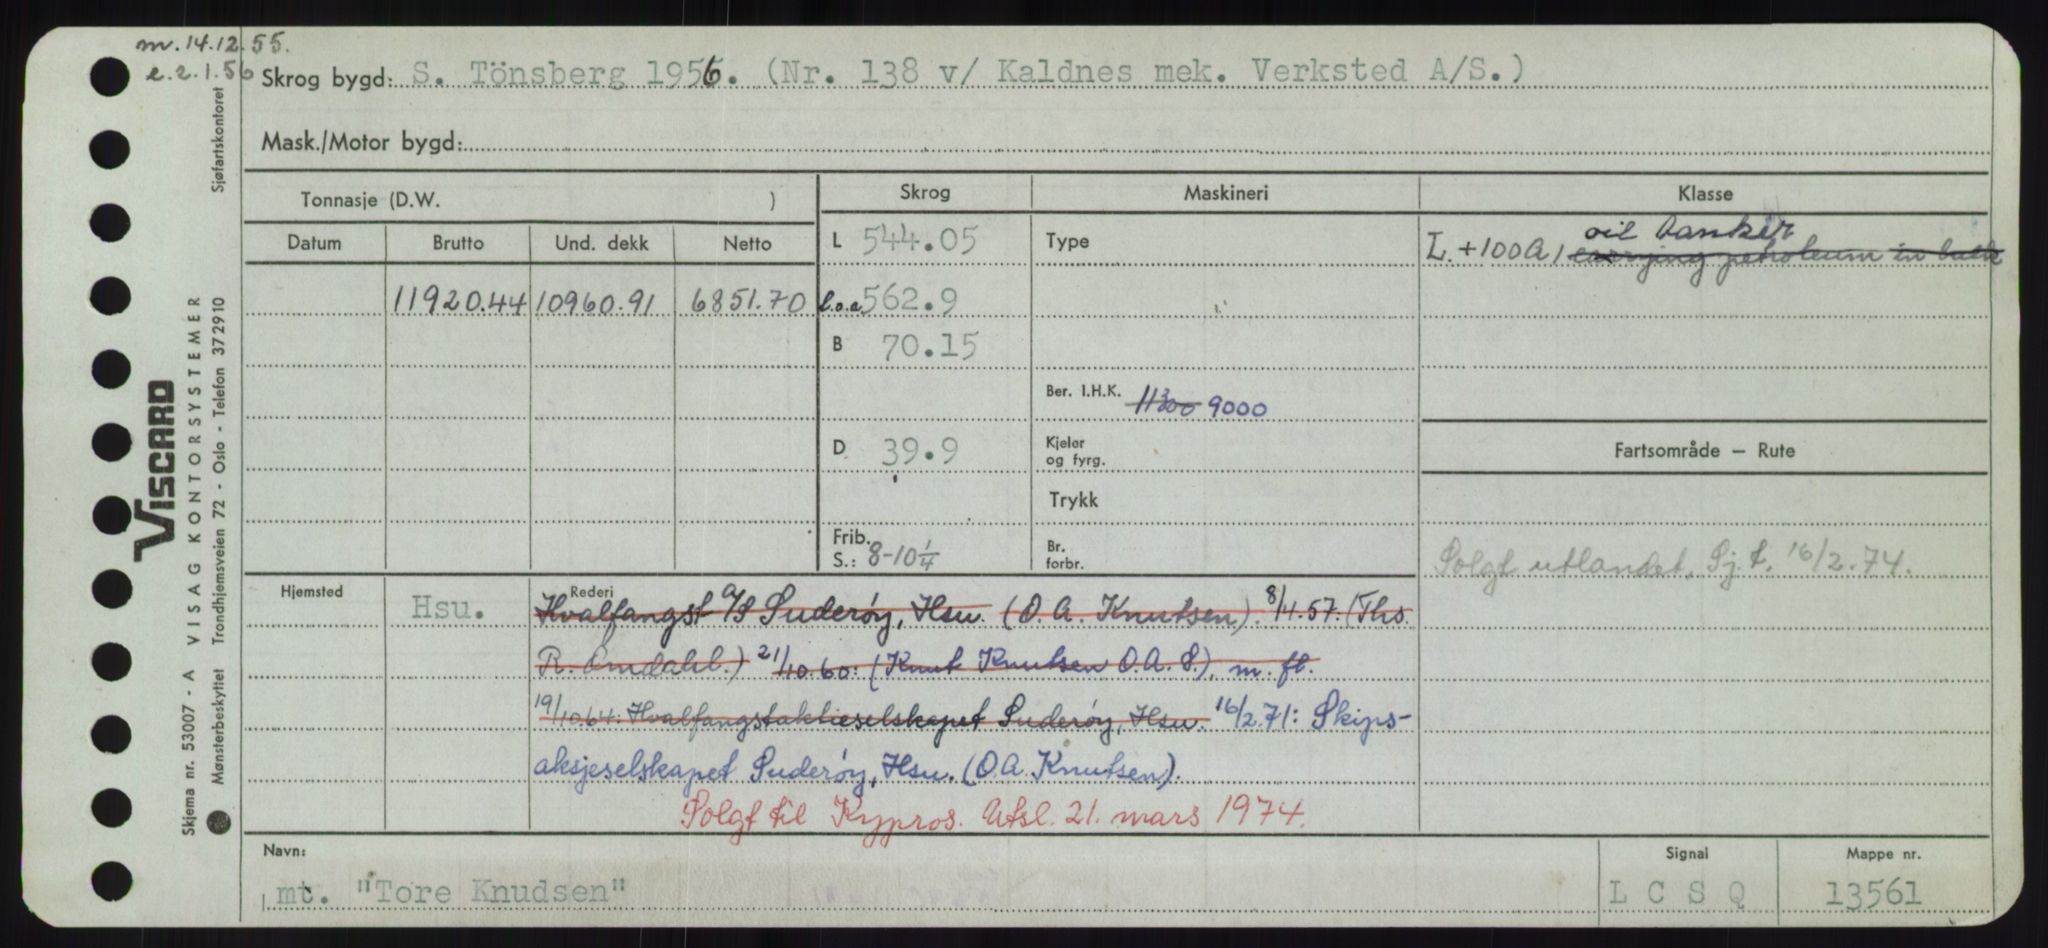 m. 14.12.55.
e. 2.1.56
Skrog bygd: S. Tönsberg 1956. (Nr. 138 v/ Kaldnes mek. Verksted A/S.)
Mask./Motor bygd:
Tonnasje (D.W. )
Skrog
Maskineri
Klasse
Datum
Brutto
Und. dekk
Netto
L 544.05
Type
oil tanker
L. +100A1 carrying petroleum in bulk
11920.44 10960.91 6851.70
l.o.a. 562.9
B 70.15
Ber. I.H.K. 11300 9000
D 39.9
Kjeler
og fyrg.
Fartsområde — Rute
Trykk
Frib.
S.: 8-10 1/4
Br.
forbr.
Solgt utlandet, Sj.t. 16/2.74.
Hjemsted
Hsu.
Rederi
Hvalfangst A/S Suderøy, Hsu. (O. A. Knutsen). 8/4.57: (Ths.
R. Amdahl.) 21/10.60: (Knut Knutsen O.A.S.), m. fl.
19/10.64: Hvalfangstaktieselskapet Suderøy, Hsu. 16/2.71: Skips-
aksjeselskapet Suderøy, Hsu. (O.A. Knutsen).
Solgt til Kypros. Utsl. 21. mars 1974.
Navn:
mt. "Tore Knudsen"
Signal
L C S Q
Mappe nr.
13561
VISCARD
Skjema nr. 53007 - A VISAG KONTORSYSTEMER
Mønsterbeskyttet Trondhjemsveien 72 - Oslo - Telefon 372910 Sjøfartskontoret